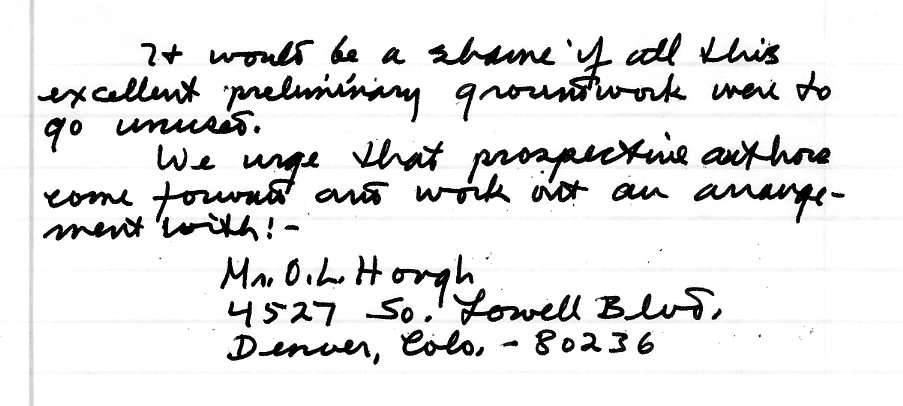 It would be a shame if all this
excellent preliminary groundwork were to
go unused.
We urge that prospective authors
come forward and work out an arrange-
ment with! -
Mr. O.L. Hough
4527 So. Lowell Blvd.
Denver, Colo. - 80236